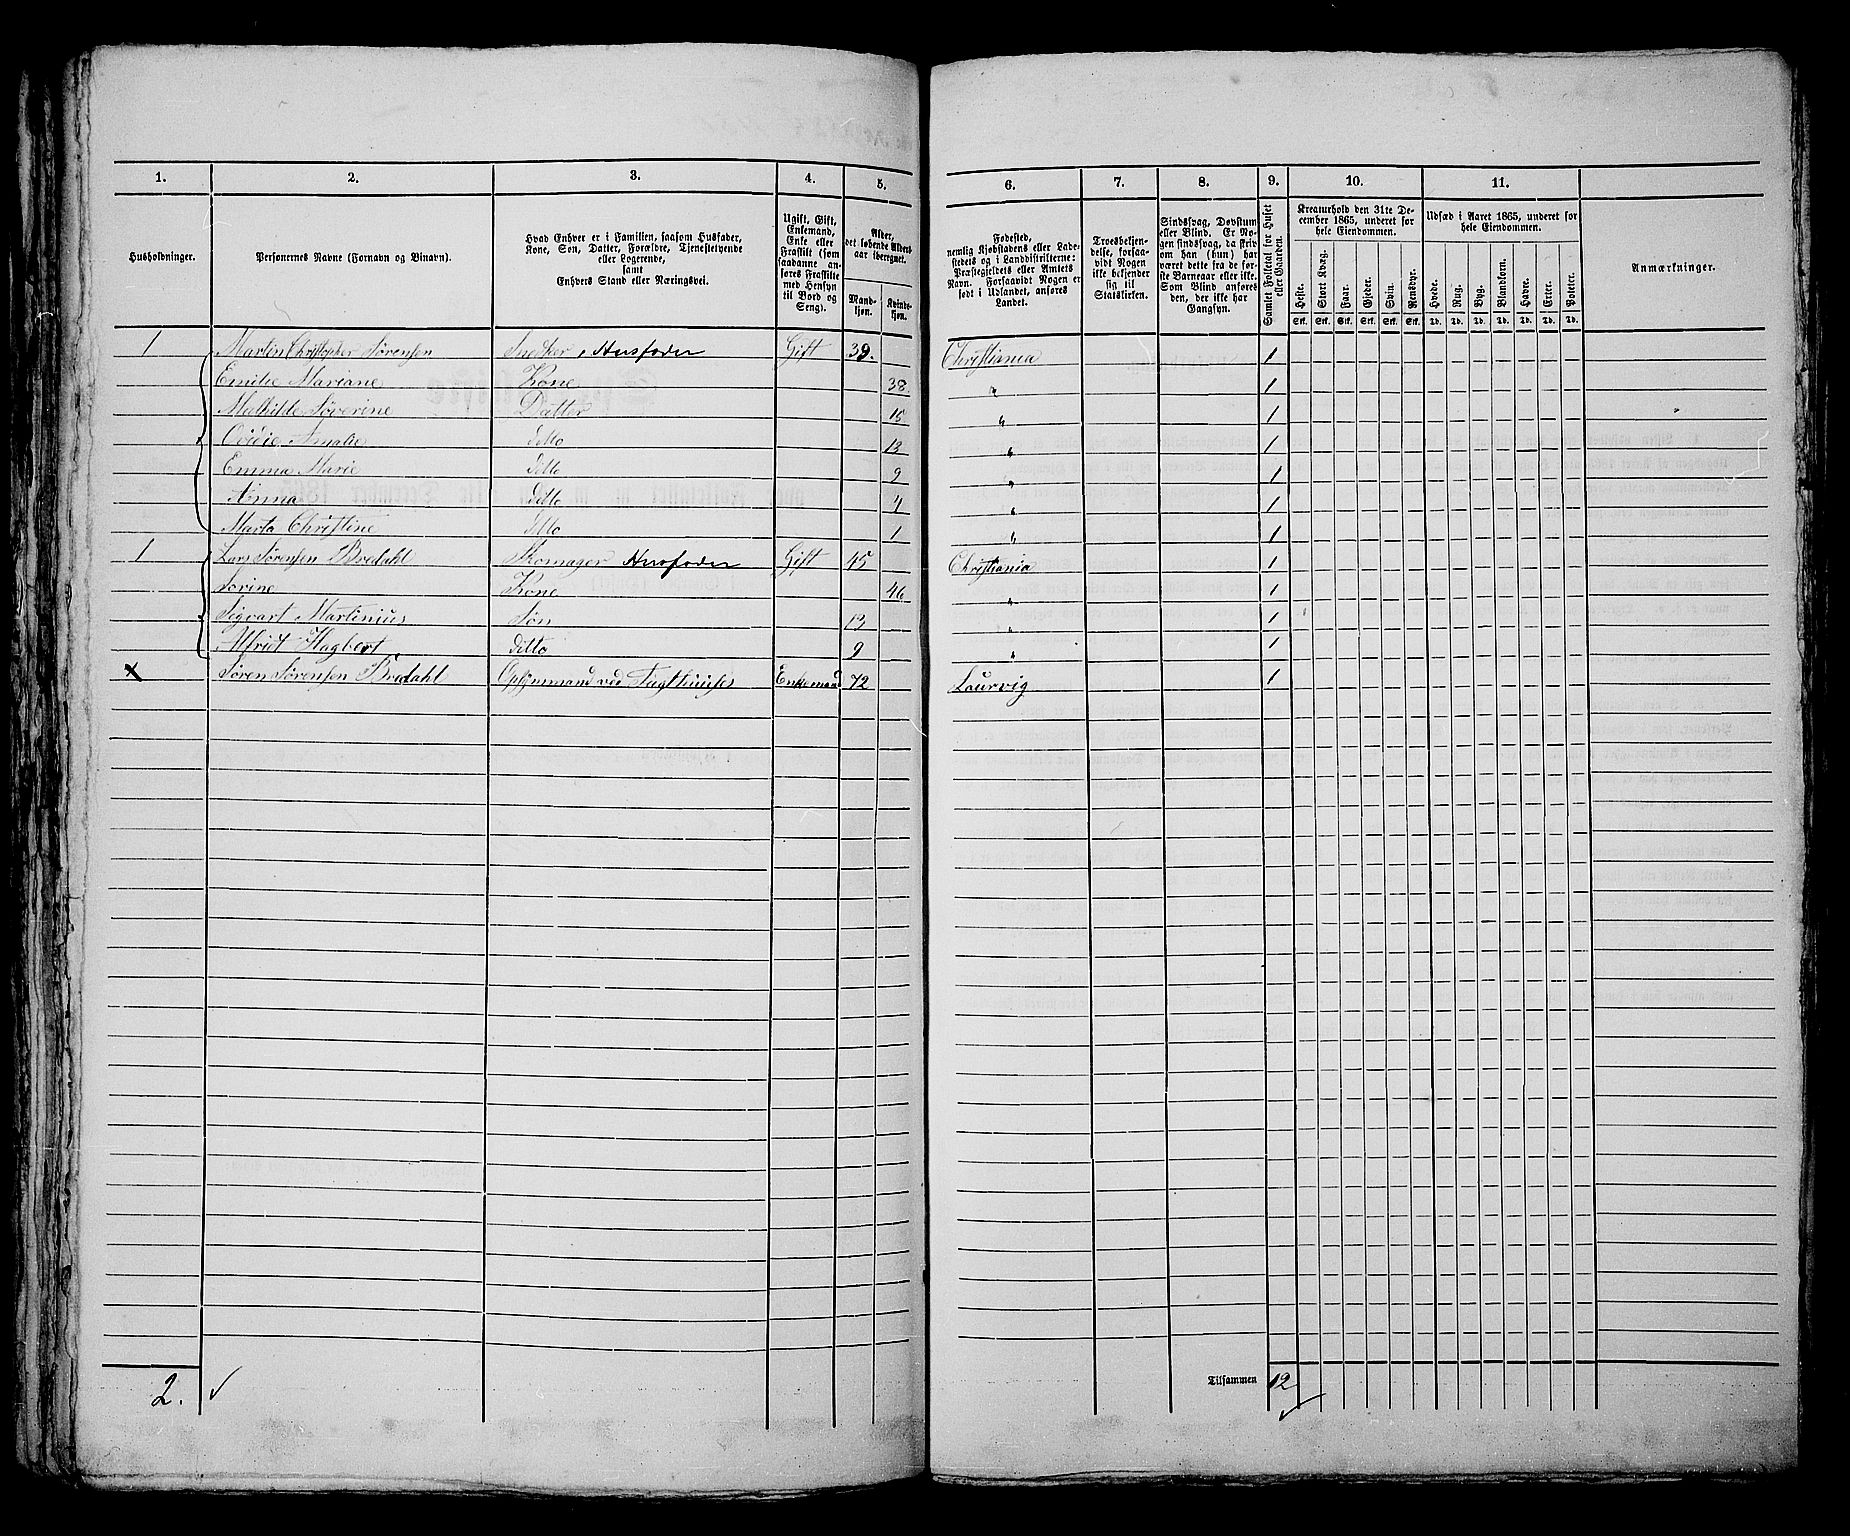 1. 2. 3. 4. 5. 6. 7. 8. 9. 10. 11.
Husholdninger.
Personernes Navne (Fornavn og Binavn).
Hvad Enhver er i Familien, saasom Husfader,
Kone, Søn, Datter, Forældre, Tjenestetyende
eller Logerende,
samt
Enhvers Stand eller Næringsvei.
Ugift, Gift,
Enkemand,
Enke eller
Fraskilt (som
saadanne an-
føres Fraskilte
med Hensyn
til Bord og
Seng).
Alder,
det løbende Alders-
aar iberegnet.
Mand-
kjøn.
Kvinde-
kjøn.
Fødested,
nemlig Kjøbstadens eller Lade-
stedets og i Landdistrikterne:
Præstegjeldets eller Amtets
Navn. Forsaavidt Nogen er
født i Udlandet, anføres
Landet.
Troesbekjen-
delse, forsaa-
vidt Nogen
ikke bekjender
sig til
Statskirken.
Sindssvag, Døvstum
eller Blind. Er No-
gen sindssvag, da skriv
om han (hun) har
været dette fra de før-
ste Barneaar eller ikke.
Som Blind anføres
den, der ikke har
Gangsyn.
Samlet Folketal for Huset
eller Gaarden.
Kreaturhold den 31te De-
cember 1865, underet for
hele Eiendommen.
Heste. Stort Kvæg. Faar. Gjeder. Svin. Rensdyr.
Stk. Stk. Stk. Stk. Stk. Stk.
Udsæd i Aaret 1865, underet for
hele Eiendommen.
Hvede. Rug. Byg. Blandkorn. Havre. Erter. Poteter.
Td. Td. Td. Td. Td. Td. Td.
Anmærkninger.
1 Martin Christopher Sørensen Snedker, Husfader Gift 39. Christiania 1
Emilie Mariane Kone 38 " 1
Mathilde Søverine Datter 15 " 1
Amalie ditto 13 " 1
Emma Marie ditto 9 " 1
Anna ditto 4 " 1
Marta Christine ditto 1 " 1
1 Lars Sørensen Bredahl Skomager Husfader Gift 45 Christiania 1
Sorine Kone 46 " 1
Sigvart Martinius Søn 13 " 1
Alfriet Hagbert ditto 9 " 1
x Søren Sørensen Bredahl Opsynmand ved Enkemand 72 Laurvig 1
2. Tilsammen 12